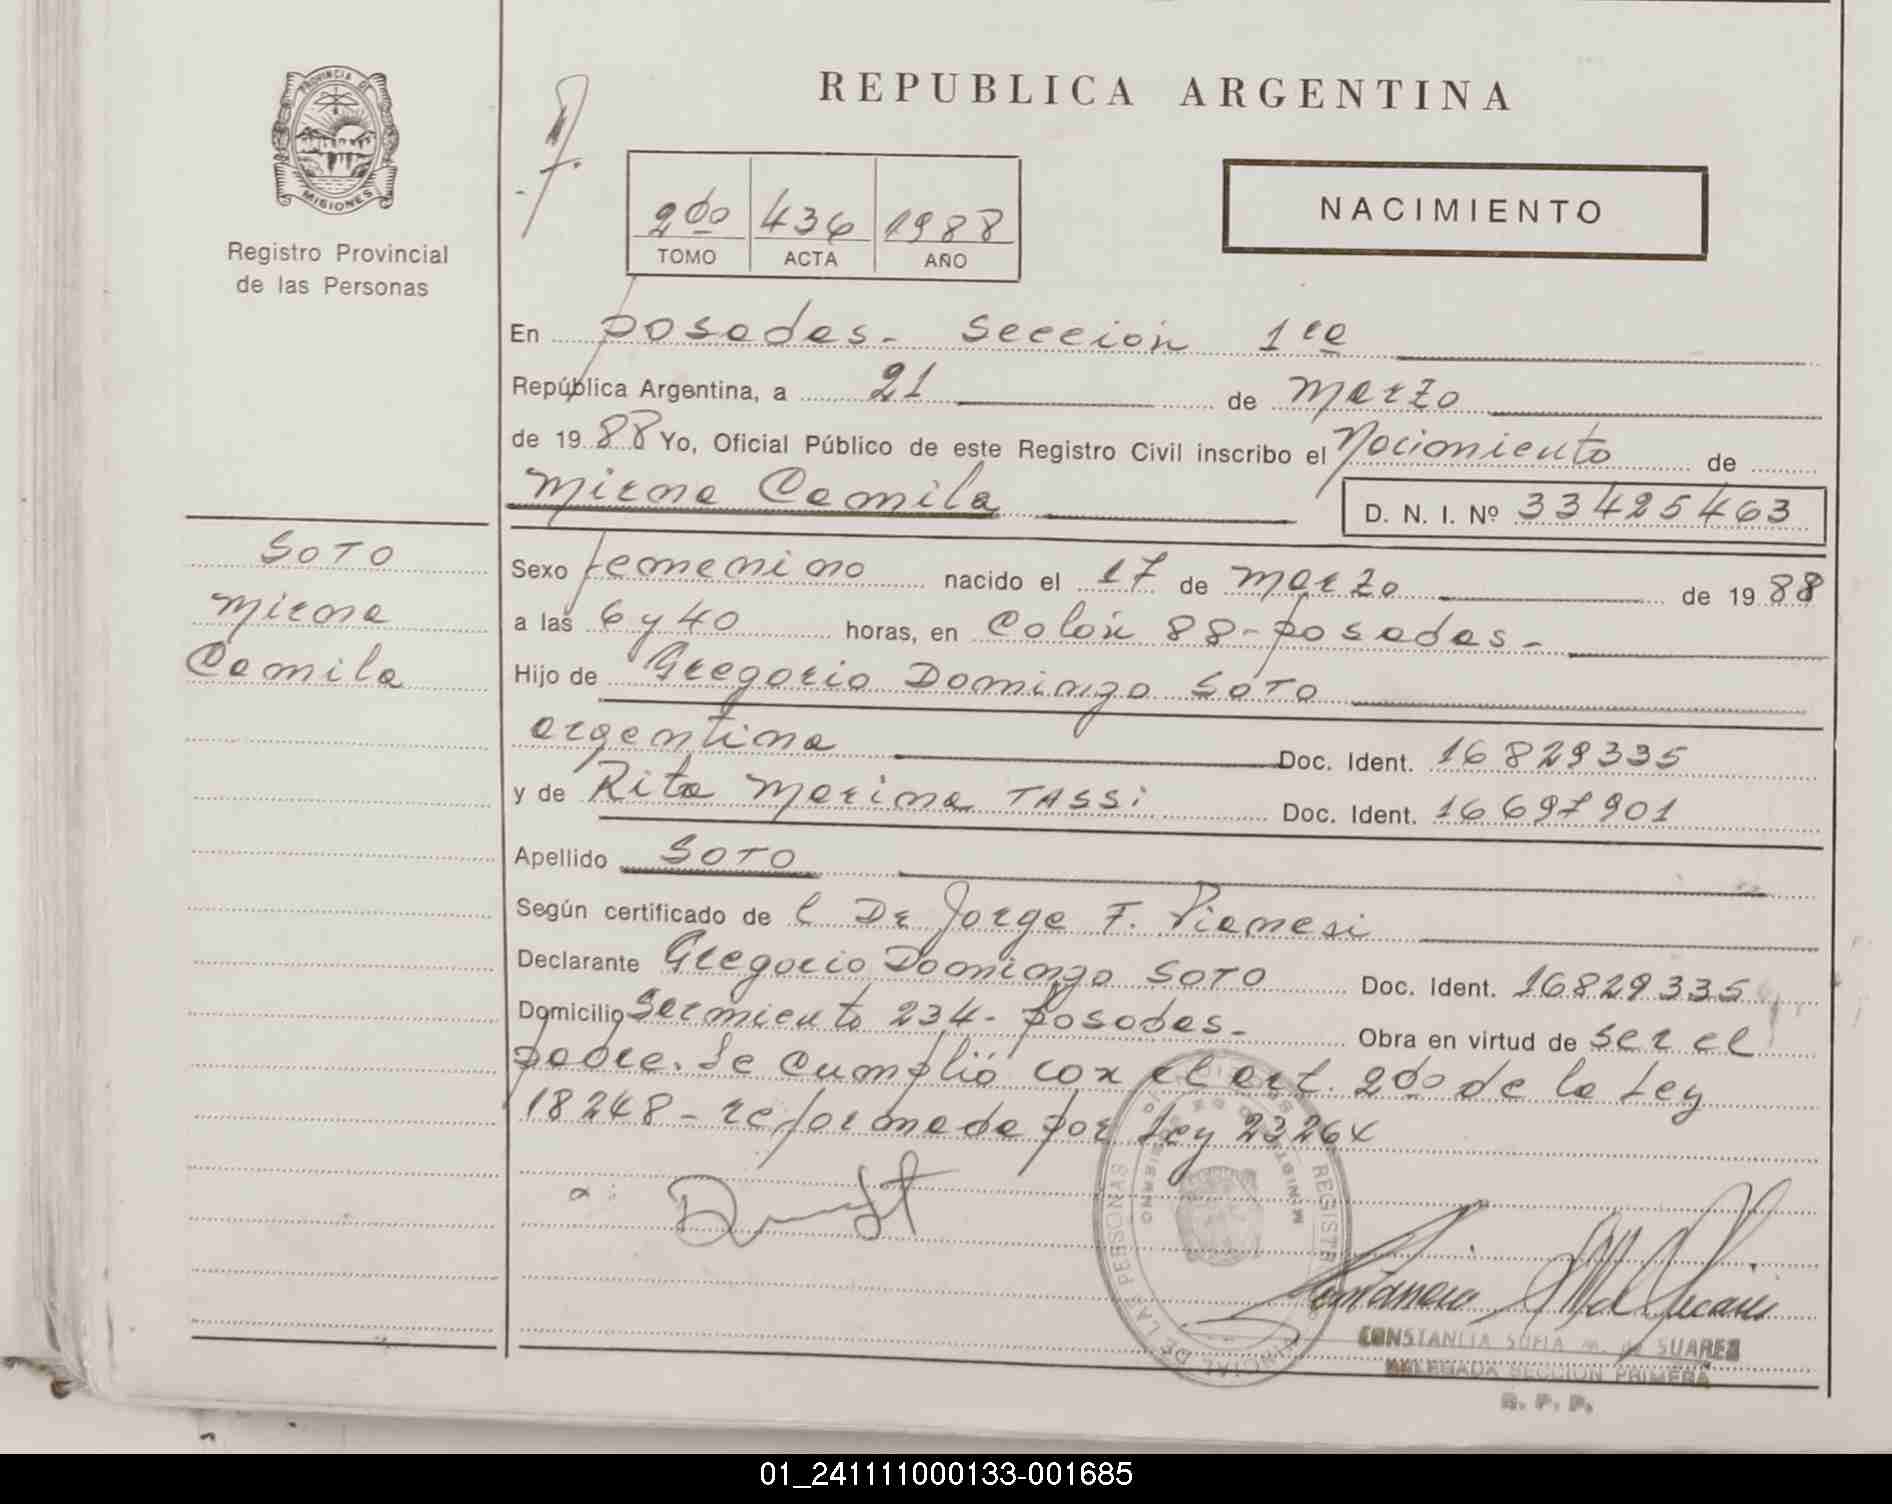 PROVINCIA DE
MISIONES
Registro Provincial
de las Personas
REPUBLICA ARGENTINA
2do 436 1988
TOMO ACTA AÑO
NACIMIENTO
En Posadas - Sección 1ra
República Argentina, a 21 de Marzo
de 1988 Yo, Oficial Público de este Registro Civil inscribo el Nacimiento de
Mirna Camila D. N. I. Nº 33425463
SOTO
Mirna
Camila
Sexo femenino nacido el 17 de Marzo de 1988
a las 6 y 40 horas, en Colón 88 - Posadas -
Hijo de Gregorio Domingo SOTO
argentina Doc. Ident. 16829335
y de Rita Marina TASSi Doc. Ident. 16697901
Apellido SOTO
Según certificado de l Dr Jorge F.
Declarante Gregorio Domingo SOTO Doc. Ident. 16829335
Domicilio Sarmiento 234 - Posadas - Obra en virtud de ser el
padre. Se cumplió con el art. 2do de la Ley
18248 - reformada por Ley 23264
REGISTRO PROVINCIAL DE LAS PERSONAS
CONSTANCIA SOFIA M. de SUAREZ
DELEGADA SECCION PRIMERA
R. P. P.
01_241111000133-001685